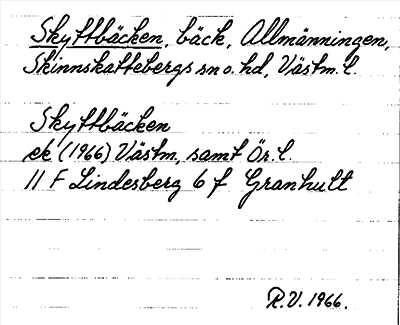 Skyttbäcken, bäck, Allmänningen,
Skinnskattebergs sn o. hd, Västm. l.
Skyttbäcken
ek (1966) Västm, samt Ör. l.
11 F Lindesberg 6 f Granhult
R.V. 1966.